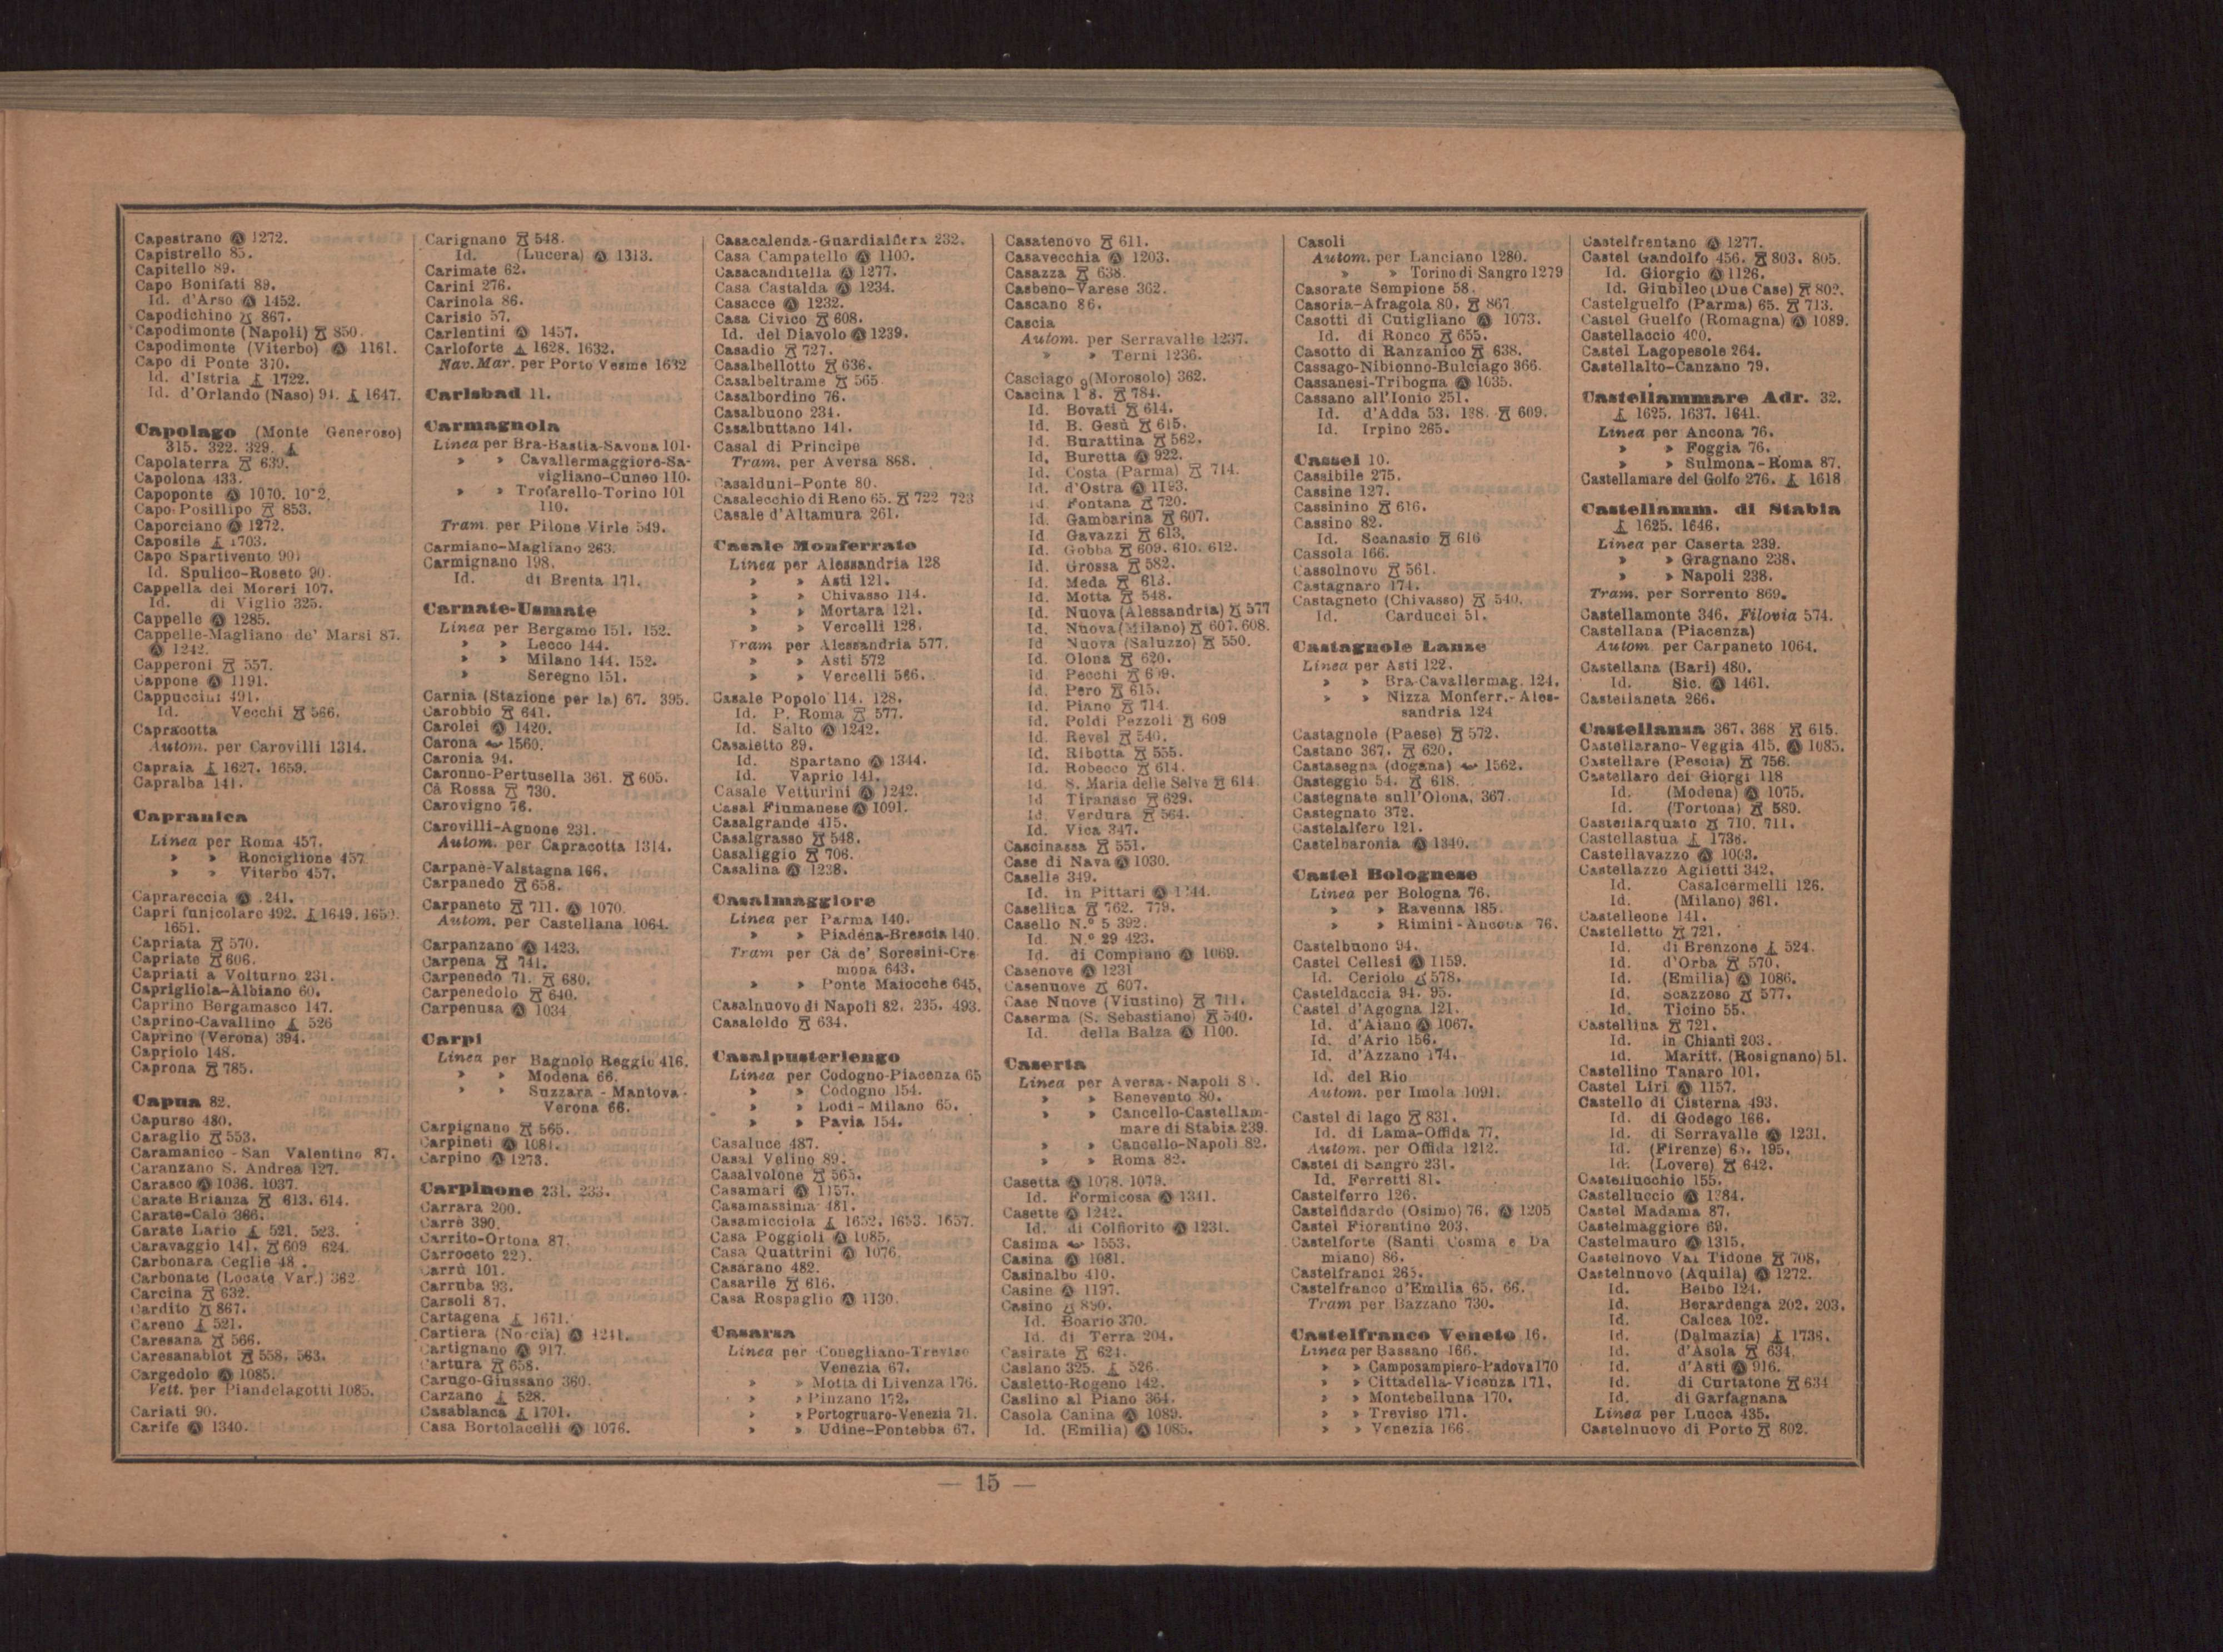 Capestrano Ⓐ 1272.
Capistrello 85.
Capitello 89.
Capo Bonifati 89.
Id. d'Arso Ⓐ 1452.
Capodichino 867.
Capodimonte (Napoli) 850.
Capodimonte (Viterbo) Ⓐ 1161.
Capo di Ponte 370.
Id. d'Istria 1722.
Id. d'Orlando (Naso) 94. 1647.
Capolago (Monte Generoso)
315. 322. 329.
Capolaterra 639.
Capolona 433.
Capoponte Ⓐ 1070.
Capo Posillipo 853.
Caporciano Ⓐ 1272.
Caposile 1703.
Capo Spartivento 90.
Id. Spulico-Roseto 90.
Cappella dei Moreri 107.
Id. di Viglio 325.
Cappelle Ⓐ 1285.
Cappelle-Magliano de' Marsi 87.
Ⓐ 1242.
Capperoni 557.
Cappone Ⓐ 1191.
Cappuccini 491.
Id. Vecchi 566.
Capracotta
Autom. per Carovilli 1314.
Capraia 1627. 1659.
Capralba 141.
Capranica
Linea per Roma 457.
» » Ronciglione 457
» » Viterbo 457.
Caprareccia Ⓐ 241.
Capri funicolare 492. 1649. 1650.
1651.
Capriata 570.
Capriate 606.
Capriati a Volturno 231.
Caprigliola-Albiano 60.
Caprino Bergamasco 147.
Caprino-Cavallino 526
Caprino (Verona) 394.
Capriolo 148.
Caprona 785.
Capua 82.
Capurso 480.
Caraglio 553.
Caramanico - San Valentino 87.
Caranzano S. Andrea 127.
Carasco Ⓐ 1036. 1037.
Carate Brianza 613. 614.
Carate-Calò 366.
Carate Lario 521. 523.
Caravaggio 141. 609 624.
Carbonara Ceglie 48
Carbonate (Locate Var.) 362
Carcina 632.
Cardito 867.
Careno 521.
Caresana 566.
Caresanablot 558. 563.
Cargedolo Ⓐ 1085.
Vett. per Piandelagotti 1085.
Cariati 90.
Carife Ⓐ 1340.
Carignano 548.
Id. (Lucera) Ⓐ 1313.
Carimate 62.
Carini 276.
Carinola 86.
Carisio 57.
Carlentini Ⓐ 1457.
Carloforte 1628. 1632.
Nav. Mar. per Porto Vesme 1632
Carlsbad 11.
Carmagnola
Linea per Bra-Bastia-Savona 101.
» » Cavallermaggiore-Sa-
vigliano-Cuneo 110.
» » Trofarello-Torino 101
110.
Tram. per Pilone Virle 549.
Carmiano-Magliano 263.
Carmignano 198.
Id. di Brenta 171.
Carnate-Usmate
Linea per Bergamo 151. 152.
» » Lecco 144.
» » Milano 144. 152.
» Seregno 151.
Carnia (Stazione per la) 67. 395.
Carobbio 641.
Carolei Ⓐ 1420.
Carona 1560.
Caronia 94.
Caronno-Pertusella 361. 605.
Cà Rossa 730.
Carovigno 76.
Carovilli-Agnone 231.
Autom. per Capracotta 1314.
Carpanè-Valstagna 166.
Carpanedo 658.
Carpaneto 711. Ⓐ 1070
Autom. per Castellana 1064.
Carpanzano Ⓐ 1423.
Carpena 741.
Carpenedo 71. 680.
Carpenedolo 640.
Carpenusa Ⓐ 1034
Carpi
Linea per Bagnolo Reggio 416.
» » Modena 66.
» » Suzzara - Mantova -
Verona 66.
Carpignano 565.
Carpineti Ⓐ 1081.
Carpino Ⓐ 1273.
Carpinone 231. 233.
Carrara 200.
Carrè 390.
Carrito-Ortona 87.
Carroceto
Carrù 101.
Carruba 93.
Carsoli 87.
Cartagena 1671.
Cartiera (Norcia) Ⓐ 1241.
Cartignano Ⓐ 917.
Cartura 658.
Carugo-Giussano 360.
Carzano 528.
Casablanca 1701.
Casa Bortolacelli Ⓐ 1076.
Casacalenda-Guardialfiera 232.
Casa Campatello Ⓐ 1100.
Casacanditella Ⓐ 1277.
Casa Castalda Ⓐ 1234.
Casacce Ⓐ 1232.
Casa Civico 608.
Id. del Diavolo Ⓐ 1239.
Casadio 727.
Casalbellotto 636.
Casalbeltrame 565
Casalbordino 76.
Casalbuono 234.
Casalbuttano 141.
Casal di Principe
Tram. per Aversa 868.
Casalduni-Ponte 80.
Casalecchio di Reno 65. 722 723
Casale d'Altamura 261.
Casale Monferrato
Linea per Alessandria 128
» » Asti 121.
» » Chivasso 114.
» » Mortara 121.
» » Vercelli 128.
Tram per Alessandria 577.
» » Asti 572
» » Vercelli 566.
Casale Popolo 114. 128.
Id. P. Roma 577.
Id. Salto Ⓐ 1242.
Casaletto 89.
Id. Spartano Ⓐ 1344.
Id. Vaprio 141.
Casale Vetturini Ⓐ 1242.
Casal Fiumanese Ⓐ 1091.
Casalgrande 415.
Casalgrasso 548.
Casaliggio 706.
Casalina Ⓐ 1238.
Casalmaggiore
Linea per Parma 140.
» » Piadena-Brescia 140.
Tram per Cà de' Soresini-Cre
mona 643.
» » Ponte Maiocche 645.
Casalnuovo di Napoli 82. 235. 493.
Casaloldo 634.
Casalpusterlengo
Linea per Codogno-Piacenza 65
» » Codogno 154.
» » Lodi - Milano 65.
» » Pavia 154.
Casaluce 487.
Casal Velino 89.
Casalvolone 565.
Casamari Ⓐ 1157.
Casamassima 481.
Casamicciola 1652. 1653. 1657.
Casa Poggioli Ⓐ 1085.
Casa Quattrini Ⓐ 1076.
Casarano 482.
Casarile 616.
Casa Rospaglio Ⓐ 1130.
Casarsa
Linea per Conegliano-Treviso
Venezia 67.
» » Motta di Livenza 176.
» » Pinzano 172.
» » Portogruaro-Venezia 71.
» » Udine-Pontebba 67.
Casatenovo 611.
Casavecchia Ⓐ 1203.
Casazza 638.
Casbeno-Varese 362.
Cascano 86.
Cascia
Autom. per Serravalle 1237.
» » Terni 1236.
Casciago (Morosolo) 362.
Cascina 198. 784.
Id. Bovati 614.
Id. B. Gesù 615.
Id. Burattina 562.
Id. Buretta Ⓐ 922.
Id. Costa (Parma) 714.
Id. d'Ostra Ⓐ 1193.
Id. Fontana 720.
Id. Gambarina 607.
Id Gavazzi 613.
Id. Gobba 609. 610. 612.
Id. Grossa 582.
Id. Meda 613.
Id. Motta 548.
Id. Nuova (Alessandria) 577
Id. Nuova (Milano) 607. 608.
Id Nuova (Saluzzo) 550.
Id. Olona 620.
Id. Pecchi 609.
Id. Pero 615.
Id. Piano 714
Id. Poldi Pezzoli 609
Id. Revel 540.
Id. Ribotta 555.
Id. Robecco 614.
Id. S. Maria delle Selve 614
Id. Tiranaso 629.
Id. Verdura 564.
Id. Vica 347.
Cascinassa 551.
Case di Nava Ⓐ 1030.
Caselle 349.
Id. in Pittari Ⓐ 1344.
Casellica 762. 779.
Casello N.º 5 392.
Id. N.º 29 423.
Id. di Compiano Ⓐ 1069.
Casenove Ⓐ 1231
Casenuove 607.
Case Nuove (Viustino) 711.
Caserma (S. Sebastiano) 540.
Id. della Balza Ⓐ 1100.
Caserta
Linea per Aversa - Napoli
» » Benevento 80.
» » Cancello-Castellam-
mare di Stabia 239.
» » Cancello-Napoli 82.
» » Roma 82.
Casetta Ⓐ 1078. 1079.
Id. Formicosa Ⓐ 1341.
Casette Ⓐ 1242.
Id. di Colfiorito Ⓐ 1231.
Casima 1553.
Casina Ⓐ 1081.
Casinalbo 410.
Casine Ⓐ 1197.
Casino 890.
Id. Boario 370.
Id. di Terra 204.
Casirate 624.
Caslano 325. 526.
Casletto-Rogeno 142.
Caslino al Piano 364.
Casola Canina Ⓐ 1089.
Id. (Emilia) Ⓐ 1085.
Casoli
Autom. per Lanciano 1280.
» » Torino di Sangro 1279
Casorate Sempione 58.
Casoria-Afragola 80. 867
Casotti di Cutigliano Ⓐ 1073.
Id. di Ronco 655.
Casotto di Ranzanico 638.
Cassago-Nibionno-Bulciago 366.
Cassanesi-Tribogna Ⓐ 1035.
Cassano all'Ionio 251.
Id. d'Adda 53. 138. 609.
Id. Irpino 265.
Cassel 10.
Cassibile 275.
Cassine 127.
Cassinino 616.
Cassino 82.
Id. Scanasio 616
Cassola 166.
Cassolnovo 561.
Castagnaro 174.
Castagneto (Chivasso) 540.
Id. Carducci 51.
Castagnole Lanze
Linea per Asti 122.
» » Bra-Cavallermag. 124.
» » Nizza Monferr.- Ales-
sandria 124
Castagnole (Paese) 572.
Castano 367. 620.
Castasegna (dogana) 1562.
Casteggio 54. 618.
Castegnate sull'Olona, 367.
Castegnato 372.
Castelalfero 121.
Castelbaronia Ⓐ 1340.
Castel Bolognese
Linea per Bologna 76.
» » Ravenna 185.
» » Rimini - Ancona 76.
Castelbuono 94.
Castel Cellesi Ⓐ 1159.
Id. Ceriolo 578.
Casteldaccia 94. 95.
Castel d'Agogna 121.
Id. d'Aiano Ⓐ 1067.
Id. d'Ario 156.
Id. d'Azzano 174.
Id. del Rio
Autom. per Imola 1091.
Castel di lago 831.
Id. di Lama-Offida 77.
Autom. per Offida 1212.
Castel di Sangro 231.
Id. Ferretti 81.
Castelferro 126.
Castelfidardo (Osimo) 76. Ⓐ 1205
Castel Fiorentino 203.
Castelforte (Santi Cosma e Da
miano) 86.
Castelfranci 265.
Castelfranco d'Emilia 65. 66.
Tram per Bazzano 730.
Castelfranco Veneto 16.
Linea per Bassano 166.
» » Camposampiero-Padova 170
» » Cittadella-Vicenza 171.
» » Montebelluna 170.
» » Treviso 171.
» » Venezia 166
Castelfrentano Ⓐ 1277.
Castel Gandolfo 456. 803. 805.
Id. Giorgio Ⓐ 1126.
Id. Giubileo (Due Case) 802.
Castelguelfo (Parma) 65. 713.
Castel Guelfo (Romagna) Ⓐ 1089.
Castellaccio 400.
Castel Lagopesole 264.
Castellalto-Canzano 79.
Castellammare Adr. 32.
1625. 1637. 1641.
Linea per Ancona 76.
» » Foggia 76.
» » Sulmona - Roma 87.
Castellamare del Golfo 276. 1618
Castellamm. di Stabia
1625. 1646.
Linea per Caserta 239.
» » Gragnano 238.
» » Napoli 238.
Tram. per Sorrento 869.
Castellamonte 346. Filovia 574.
Castellana (Piacenza)
Autom. per Carpaneto 1064.
Castellana (Bari) 480.
Id. Sic. Ⓐ 1461.
Castellaneta 266.
Castellanza 367. 368 615.
Castellarano-Veggia 415. Ⓐ 1085.
Castellare (Pescia) 756.
Castellaro dei Giorgi 118
Id. (Modena) Ⓐ 1075.
Id. (Tortona) 580.
Castellarquato 710. 711.
Castellastua 1738.
Castellavazzo Ⓐ 1003.
Castellazzo Aglietti 342.
Id. Casalcermelli 126.
Id. (Milano) 361.
Castelleone 141.
Castelletto 721.
Id. di Brenzone 524.
Id. d'Orba 570.
Id. (Emilia) Ⓐ 1086.
Id. Scazzoso 577.
Id. Ticino 55.
Castellina 721.
Id. in Chianti 203.
Id. Maritt. (Rosignano) 51.
Castellino Tanaro 101.
Castel Liri Ⓐ 1157.
Castello di Cisterna 493.
Id. di Godego 166.
Id. di Serravalle Ⓐ 1231.
Id. (Firenze) 195.
Id. (Lovere) 642.
Castellucchio 155.
Castelluccio Ⓐ
Castel Madama 87.
Castelmaggiore 69.
Castelmauro Ⓐ 1315.
Castelnovo Val Tidone 708.
Castelnuovo (Aquila) Ⓐ 1272.
Id. Belbo 124.
Id. Berardenga 202. 203.
Id. Calcea 102.
Id. (Dalmazia) 1738.
Id. d'Asola 634.
Id. d'Asti Ⓐ 916.
Id. di Curtatone 634
Id. di Garfagnana
Linea per Lucca 435.
Castelnuovo di Porto 802.
— 15 —